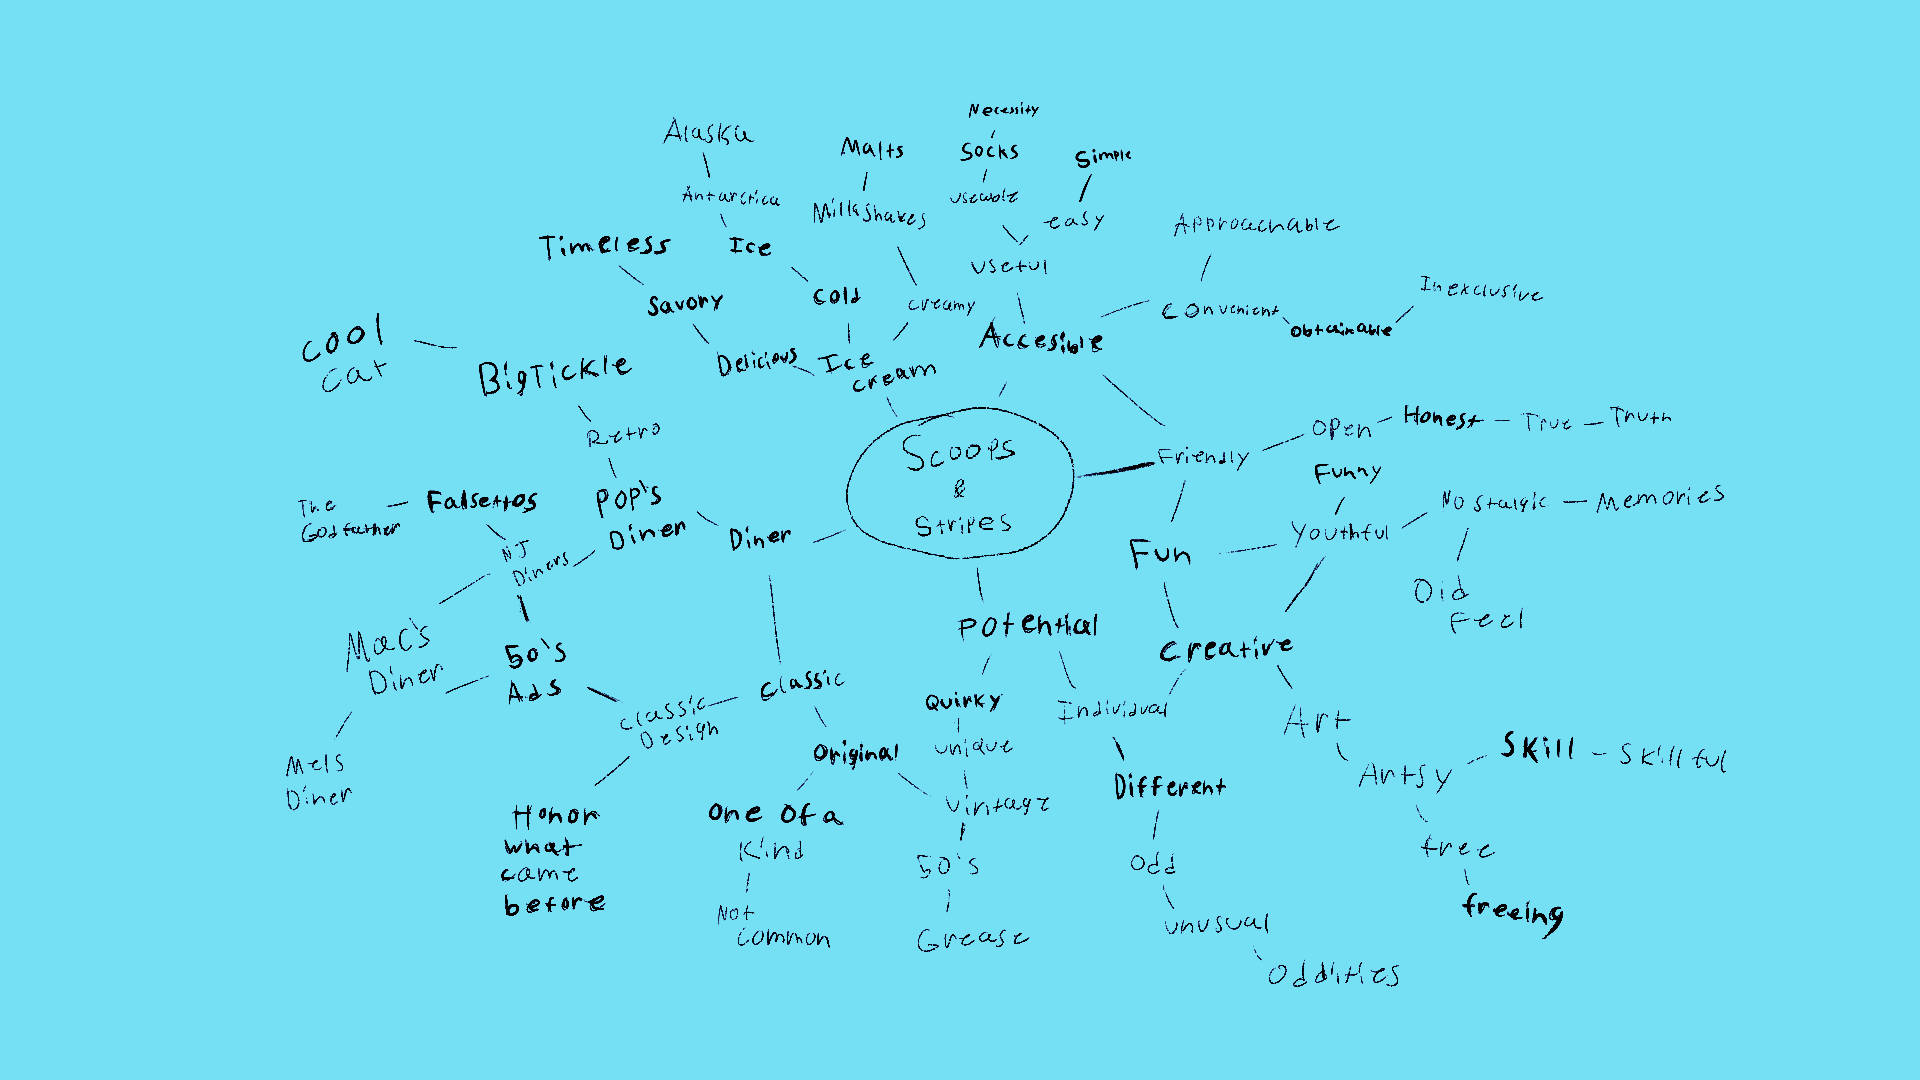 Necessity
Alaska
Malts
Socks
Simple
Antarctica
Milkshakes
useable
easy
Approachable
Timeless
Ice
useful
Inexclusive
Savory
Cold
creamy
Convenient
obtainable
Accesible
Cool
Cat
BigTickle
Delicious
Ice
cream
Retro
Scoops
&
Stripes
Friendly
Open
Honest
True
Truth
Funny
The
Godfather
Falsettos
Pop's
Diner
Diner
NJ
Diners
Fun
Youthful
Nostalgic
Memories
Old
Feel
Mac's
Diner
50's
Ads
Classic
Design
Classic
Potential
Creative
Quirky
Individual
Art
Mels
Diner
Original
unique
Artsy
Skill
Skillful
Honor
what
came
before
One Of a
Kind
vintage
Different
Not
Common
50's
Odd
free
Grease
unusual
freeing
Oddities